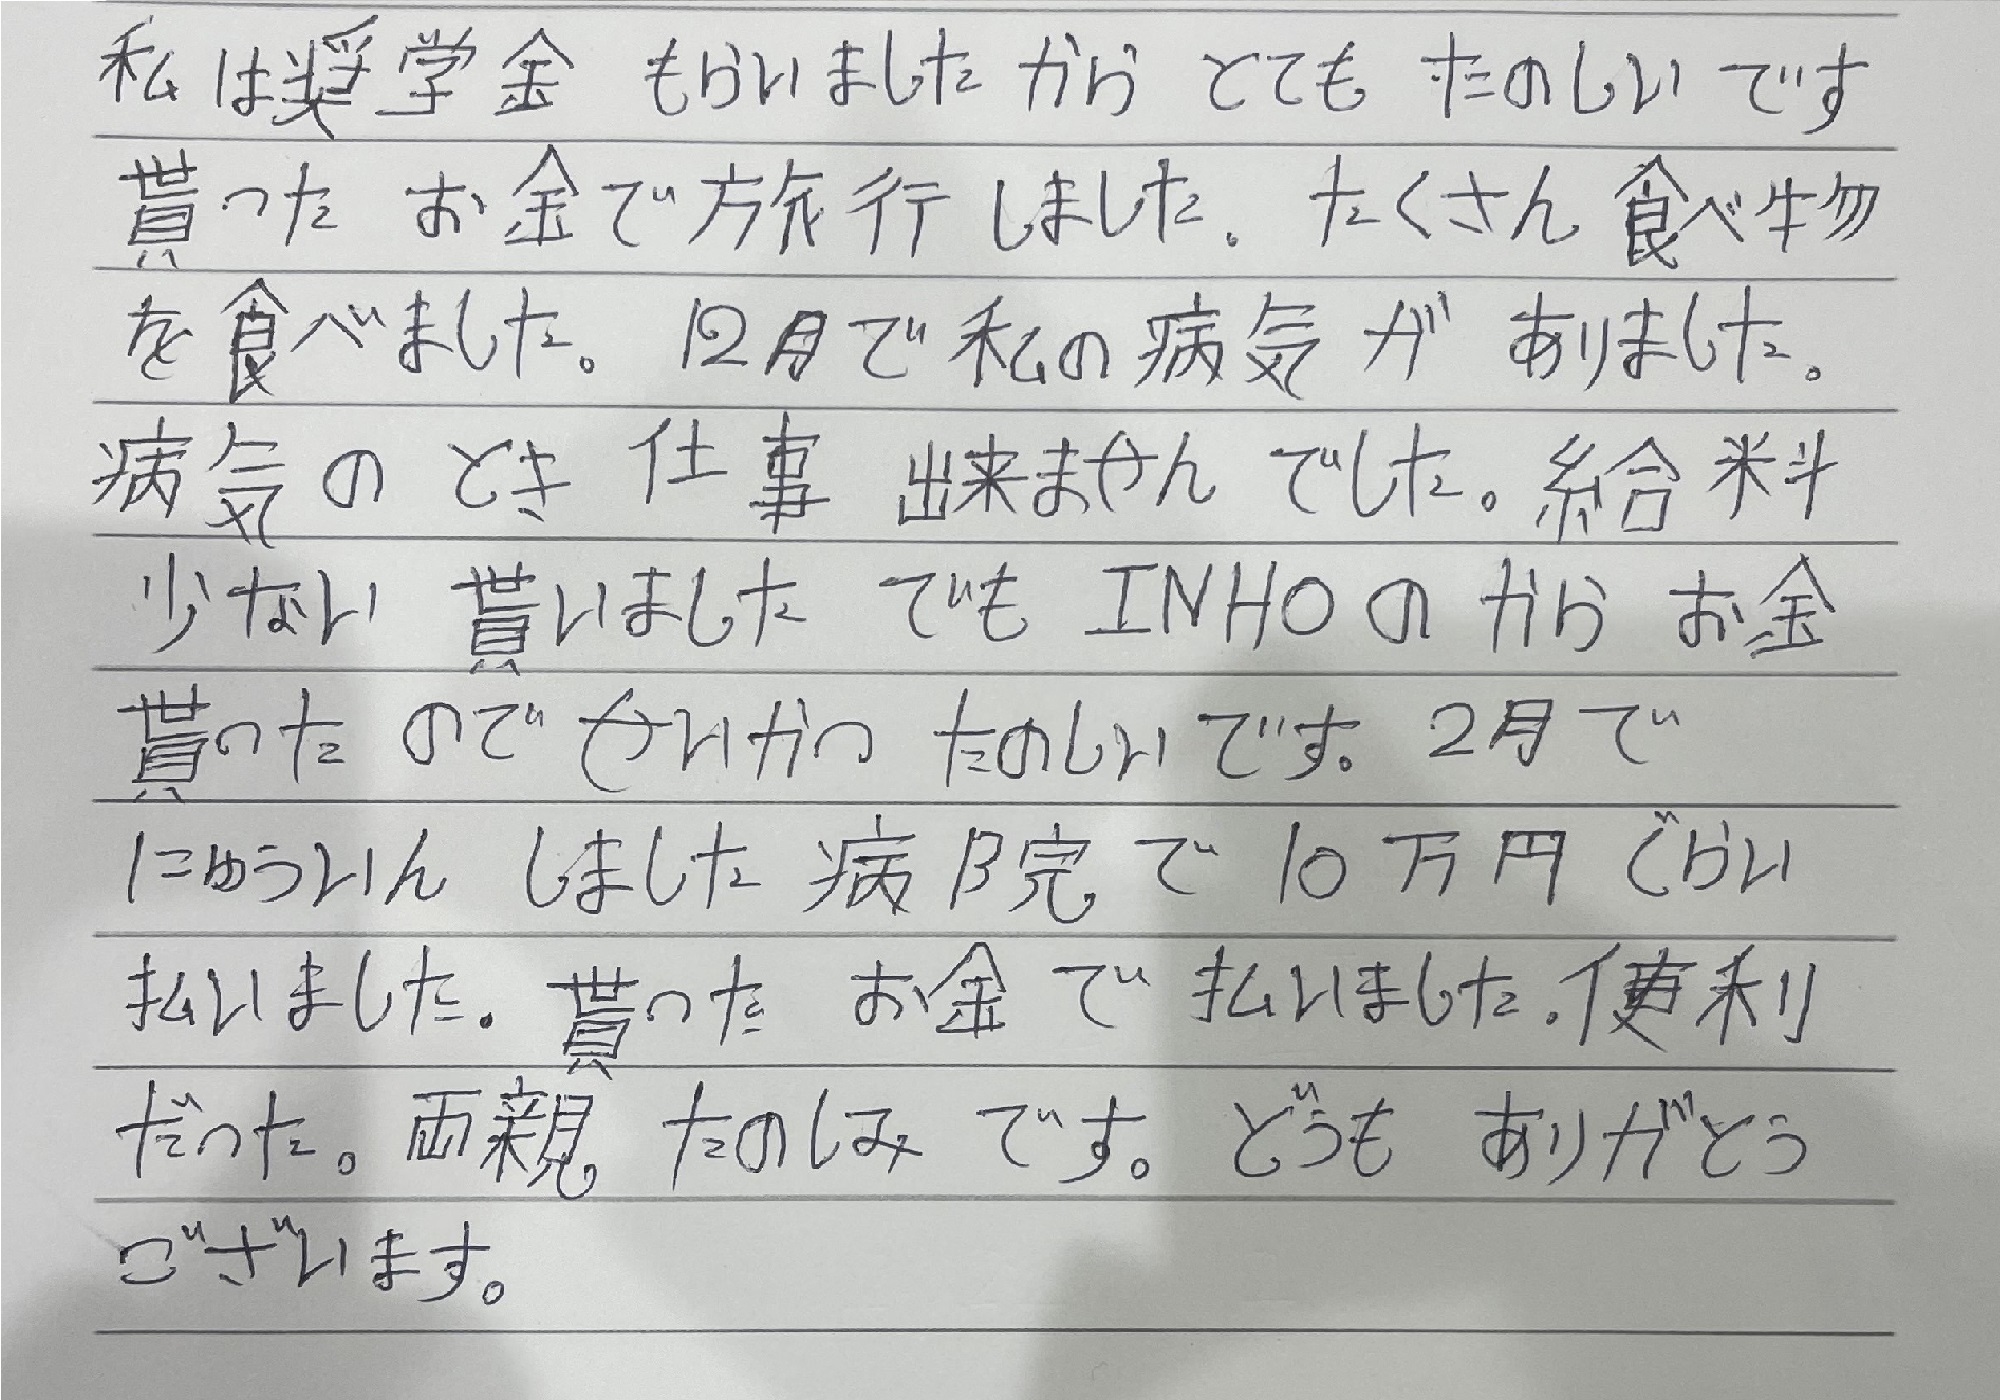 私は奨学金 もらいましたから とても たのしいです
貰った お金で旅行しました. たくさん食べ物
を食べました。12月で私の病気が ありました。
病気の とき 仕事 出来ませんでした。給料
少ない 貰いました でも INHOの から お金
貰ったのでせいかつ たのしいです。2月で
にゅういん しました 病院で 10万円ぐらい
払いました。貰った お金で払いました.便利
だった。両親 たのしみです。どうも ありがとう
ございます。